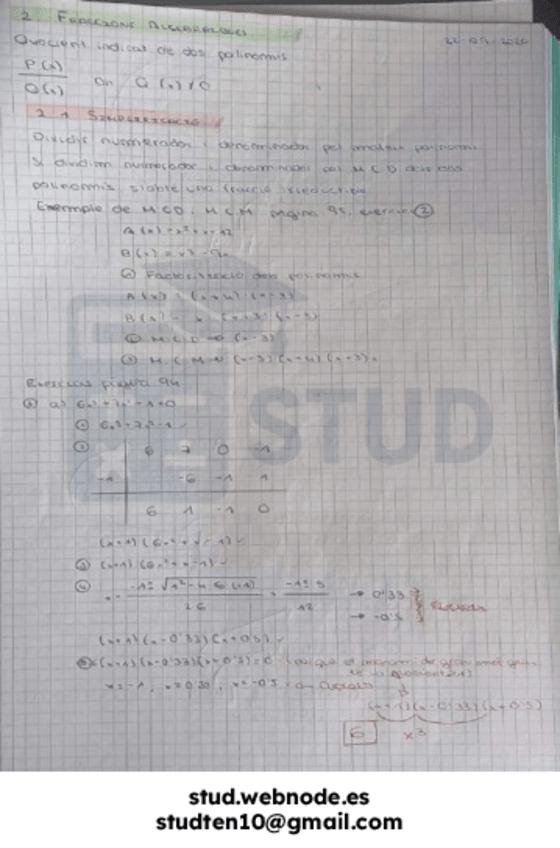 2. FRACCIONS ALGEBRAIQUES
22-04-2020
Quocient indicat de dos polinomis
P(x)
Q(x) on Q(x) ≠ 0
2.1 SIMPLIFICACIÓ
Dividir numerador i denominador pel mateix polinomi
Si dividim numerador i denominador pel MCD dels dos
polinomis s'obté una fracció irreductible
Exemple de MCD i MCM pàgina 95, exercici ②
A(x) = x²+x-12
B(x) = x³-9x
Factorització dels polinomis
A(x) = (x+4)·(x-3)
B(x) = x·(x+3)(x-3)
MCD → (x-3)
MCM → (x-3)(x+4)(x+3)·x
STUD
Exercicis pàgina 94
a) 6x³+7x²-1=0
6x³+7x²-1
6 7 0 -1
-1 -6 -1 1
6 1 -1 0
(x+1)(6x²+x-1)
③ (x+1)(6x²+x-1)
④ x = -1±√1²-4·6·(-1) = -1±5 → 0'33
2·6 12 → -0'5
(x+1)(x-0'33)(x+0'5)
(x+1)(x-0'33)(x+0'5)=0
x=-1, x=0'33, x=-0'5
(x+1)(x-0'33)(x+0'5)
6 x³
stud.webnode.es
studten10@gmail.com